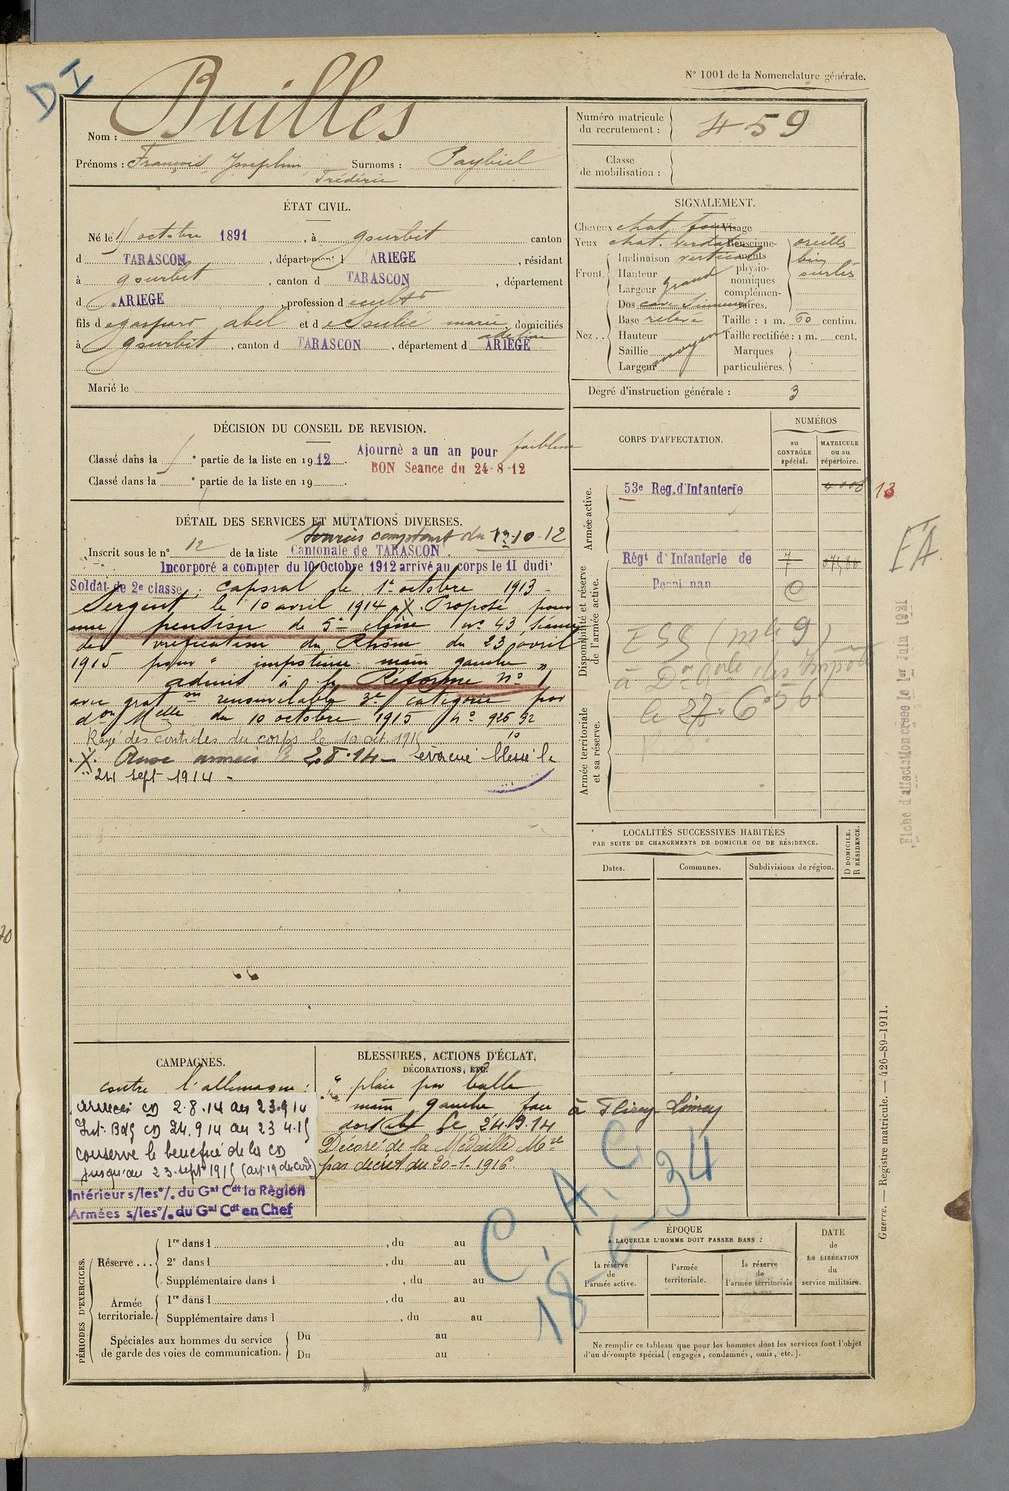 DI
N° 1001 de la Nomenclature générale.
Nom : Builles
Prénoms : François, Josephin, Frédéric Surnoms : Paybiel
Numéro matricule du recrutement : 459
Classe de mobilisation :
ÉTAT CIVIL.
Né le octobre 1891, à Gourbit canton
d TARASCON, département d ARIEGE, résidant
à Gourbit, canton d TARASCON, département
d ARIEGE, profession de cultr
fils de Gaspard Abel et de Julie Marie domiciliés
à Gourbit, canton d TARASCON, département d ARIEGE
Marié le
SIGNALEMENT.
Cheveux chat.
Yeux chat. verdâtre
Front. Inclinaison verticale
Hauteur grand
Largeur
Nez.. Dos
Base relevé
Hauteur moyen
Saillie
Largeur
Visage
Renseignements physionomiques complémentaires.
oreilles
bien
Taille : 1 m. 60 centim.
Taille rectifiée : 1 m. cent.
Marques particulières.
Degré d'instruction générale : 3
DÉCISION DU CONSEIL DE REVISION.
Classé dans la ° partie de la liste en 1912. Ajourné a un an pour faiblesse
BON Seance du 24-8-12
Classé dans la ° partie de la liste en 19
DÉTAIL DES SERVICES ET MUTATIONS DIVERSES.
Inscrit sous le n° 12 de la liste Cantonale de TARASCON.
Incorporé a compter du 10 Octobre 1912 arrivé au corps le 11 dudi
Soldat de 2e classe; caporal le 1er octobre 1913 -
Sergent le 10 avril 1914 X Proposé pour
une pension de 5e classe n° 43, séance
de vérification du Rhône du 23 avril
1915 pour " impotence main gauche "
admis à la Réforme n° 1
avec grat on renouvelable 3e catégorie par
du 10 octobre 1915 n° 925 92
Rayé des contrôles du corps le 10 oct 1915
X. Aux armées le 2.8.14 - évacué blessé le
24 sept 1914 -
CORPS D'AFFECTATION.
NUMÉROS
au CONTRÔLE spécial.
MATRICULE ou au répertoire.
Armée active.
53e Reg. d'Infanterie
13
Disponibilité et réserve de l'armée active.
Régt d'Infanterie de
Perpignan
7
ESS (mle 9)
à Don Gale des Impôts
le 27.6.36
Armée territoriale et sa réserve.
EA
Fiche d'affectation créée le 1er Juin 1931
LOCALITÉS SUCCESSIVES HABITÉES
PAR SUITE DE CHANGEMENTS DE DOMICILE OU DE RÉSIDENCE.
Dates.
Communes.
Subdivisions de région.
D DOMICILE.
R RÉSIDENCE.
CAMPAGNES.
contre l'allemagne :
armées CD 2.8.14 au 23.9.14
Int. Bdg CD 24.9.14 au 23 4.15
conserve le bénéfice de la CD
jusqu'au 23 sept 1915 (art 19 du code)
Intérieur s/les o/. du Gal Cdt la Région
Armées s/les o/. du Gal Cdt en Chef
BLESSURES, ACTIONS D'ÉCLAT,
DÉCORATIONS, ETC.
" plaie par balle
main gauche, face à Flirey-Limey
dorsale le 24.9.14
Décoré de la Médaille Mre
par décret du 20-1-1916.
C.A.C
18-6-34
PÉRIODES D'EXERCICES.
Réserve ... 1re dans l , du au
2e dans l , du au
Supplémentaire dans l , du au
Armée territoriale. 1re dans l , du au
Supplémentaire dans l , du au
Spéciales aux hommes du service de garde des voies de communication. Du au
Du au
ÉPOQUE
À LAQUELLE L'HOMME DOIT PASSER DANS :
la réserve de l'armée active.
l'armée territoriale.
la réserve de l'armée territoriale
DATE de LA LIBÉRATION du service militaire.
Ne remplir ce tableau que pour les hommes dont les services font l'objet
d'un décompte spécial (engagés, condamnés, omis, etc.).
Guerre. — Registre matricule. — 426-89-1911.